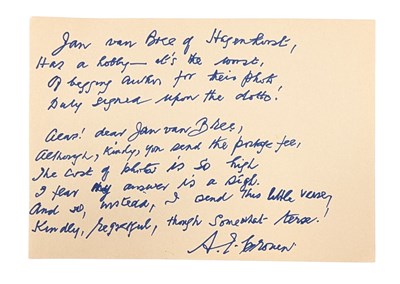 Jan van Bree of Hagenhorst,
Has a hobby – it's the worst,
Of begging authors for their photo
Duly signed upon the dotto!
Alas! dear Jan van Bree,
Although, kindly, you send the postage fee,
The cost of photos is so high
I fear my answer is a sigh.
And so, instead, I send this little verse,
Kindly, regretful, though somewhat terse!
A. J. Cronin